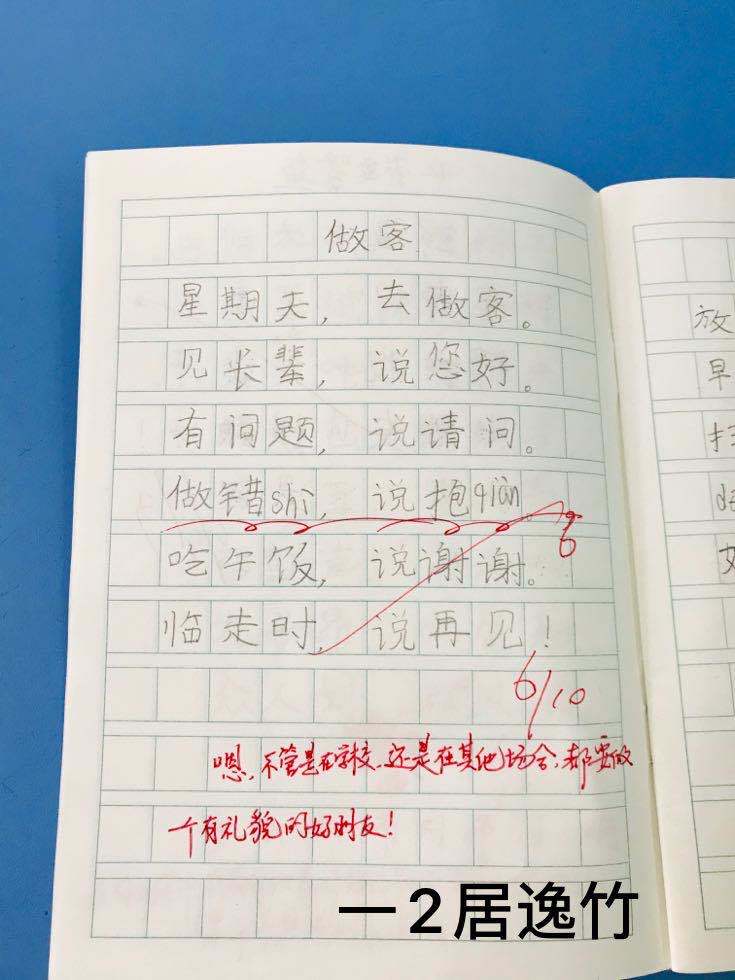 做客
星期天，去做客。
见长辈，说您好。
有问题，说请问。
做错shì，说抱qiàn。
吃午饭，说谢谢。
临走时，说再见！
6/10
嗯，不管是在学校，还是在其他场合，都要做
一个有礼貌的好朋友！
一2居逸竹
放
早